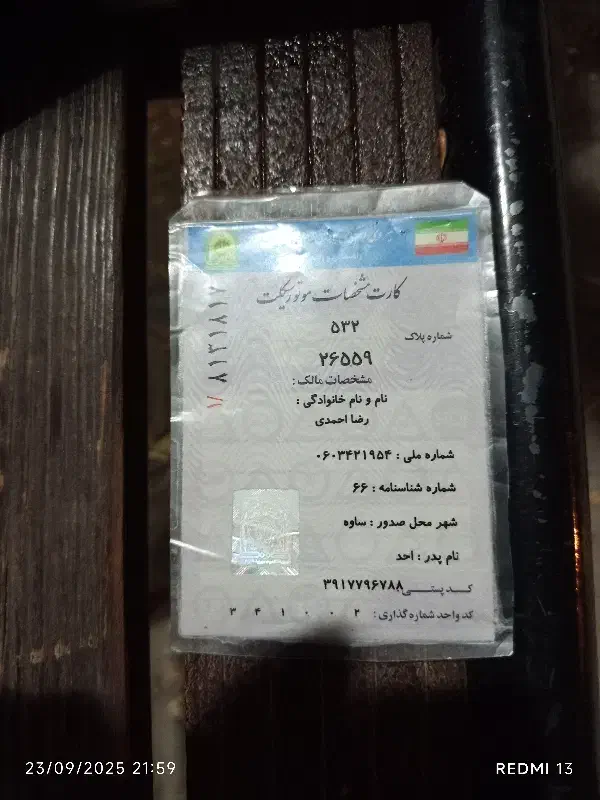 کارت مشخصات موتورسیکلت
شماره پلاک
۵۳۲
۲۶۵۵۹
مشخصات مالک :
نام و نام خانوادگی :
رضا احمدی
شماره ملی : ۰۶۰۳۴۲۱۹۵۴
شماره شناسنامه : ۶۶
شهر محل صدور : ساوه
نام پدر : احد
کد پستی : ۳۹۱۷۷۹۶۷۸۸
کد واحد شماره گذاری : ۳ ۴ ۱ ۰ ۰ ۲
23/09/2025 21:59
REDMI 13